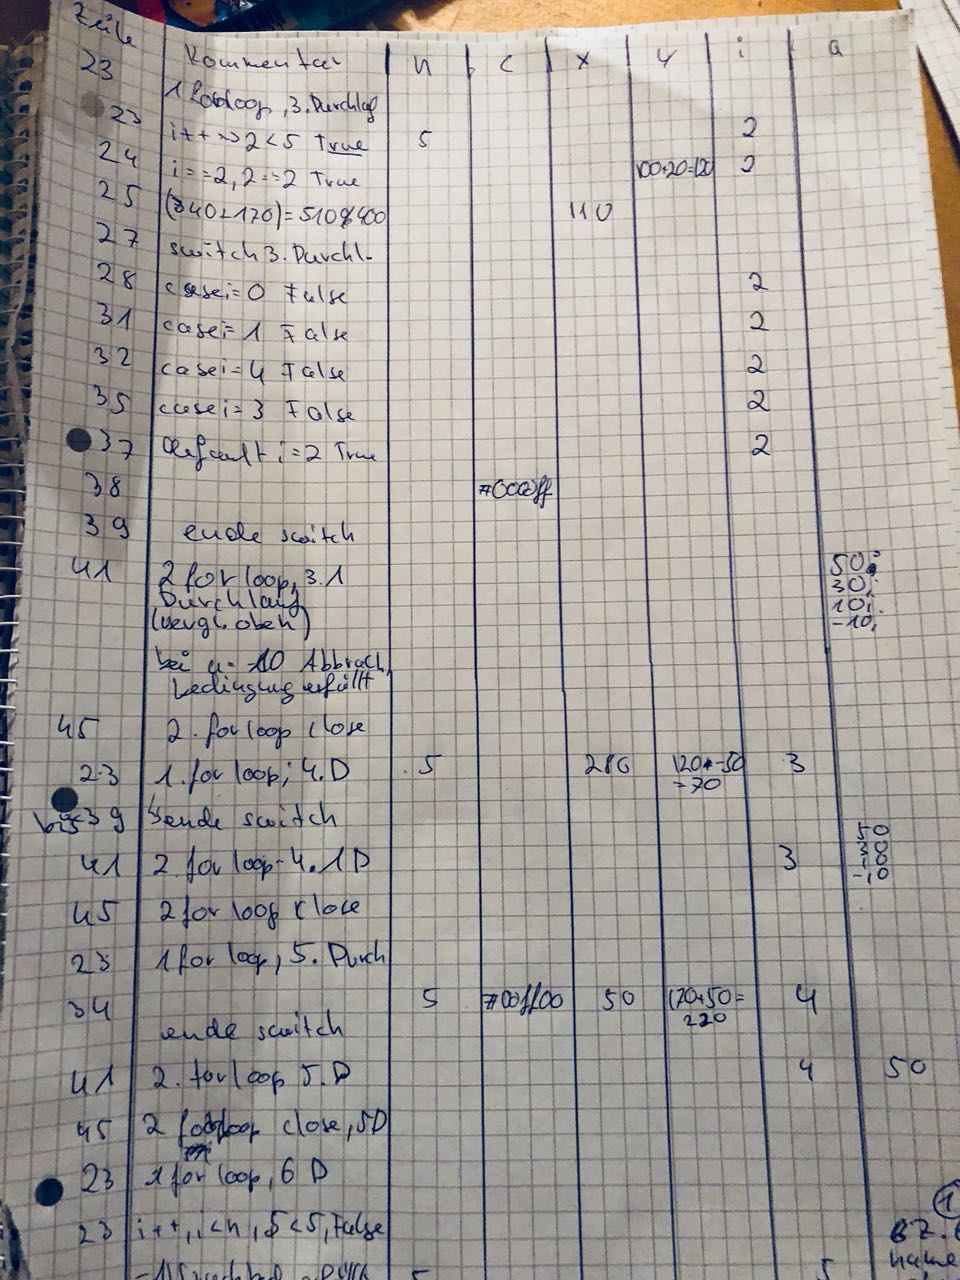 Zeile Kommentar n c x y i a
23 1 forloop, 3. Durchlauf
23 i++ => 2<5 True 5 2
24 i==2, 2==2 True 100+20=120 2
25 (340+170)=510%400 110
27 switch 3. Durchl.
28 case i=0 False 2
31 case i=1 False 2
32 case i=4 False 2
35 case i=3 False 2
37 default i=2 True 2
38 #0000ff
39 ende switch
41 2 for loop, 3.1 50;
Durchlauf 30;
(vergl. oben) 10;
-10;
bei a=-10 Abbruch
bedingung erfüllt
45 2. for loop close
23 1. for loop, 4. D 5 280 120+-50 3
=70
bis 39 ende switch
41 2. for loop - 4.1 D 3 50
-10
45 2 for loop close
23 1 for loop, 5. Durch
34 5 #00ff00 50 170+50= 4
220
ende switch
41 2. for loop 5. D 4 50
45 2 forloop close, 5D
23 1 for loop, 6 D
23 i++, i<n, 5<5, False
1
5